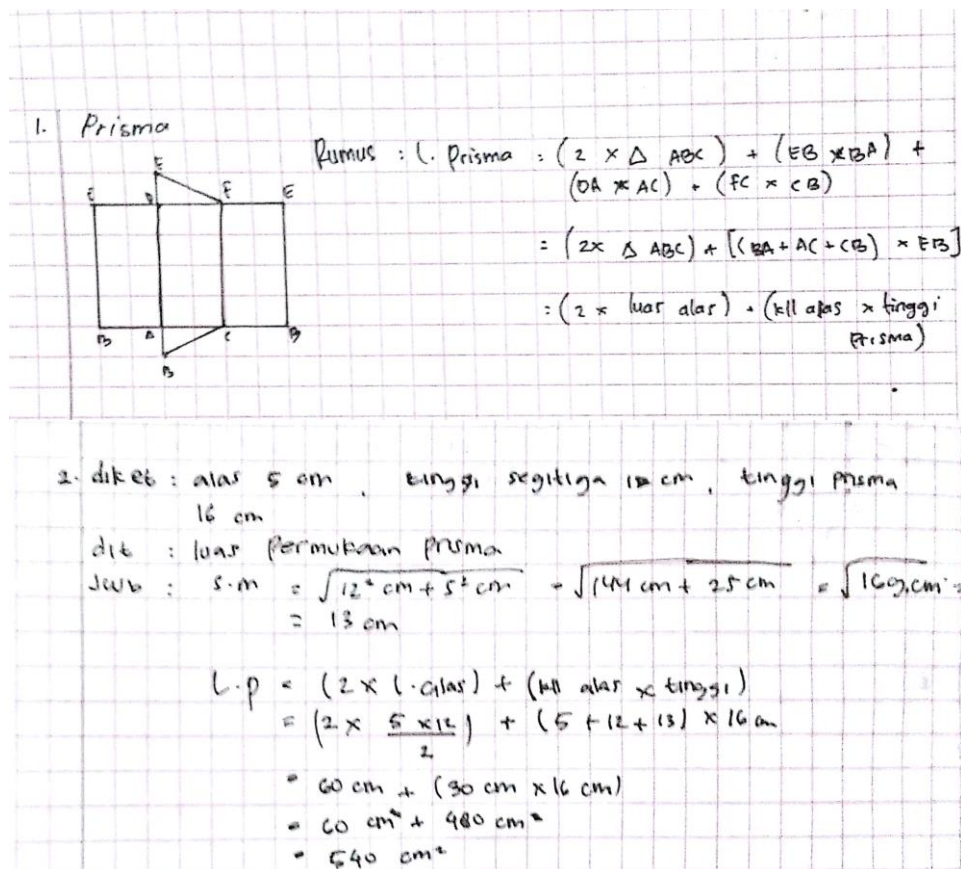 1. Prisma
Rumus : L. Prisma : (2 × Δ ABC) + (EB × BA) +
(DA × AC) + (FC × CB)
= (2× Δ ABC) + [(BA + AC + CB) × EB]
= (2 × luas alas) + (kll alas × tinggi
Prisma)
E
E D F E
B A C B
B
2. diket : alas 5 cm , tinggi segitiga 12 cm , tinggi prisma
16 cm
dit : luas permukaan prisma
Jwb : s.m = √12² cm + 5² cm = √144 cm + 25 cm = √169 cm =
= 13 cm
L.p = (2 × l.alas) + (kll alas × tinggi)
= (2 × 5 × 12 / 2) + (5 + 12 + 13) × 16 cm
= 60 cm + (30 cm × 16 cm)
= 60 cm² + 480 cm²
= 540 cm²